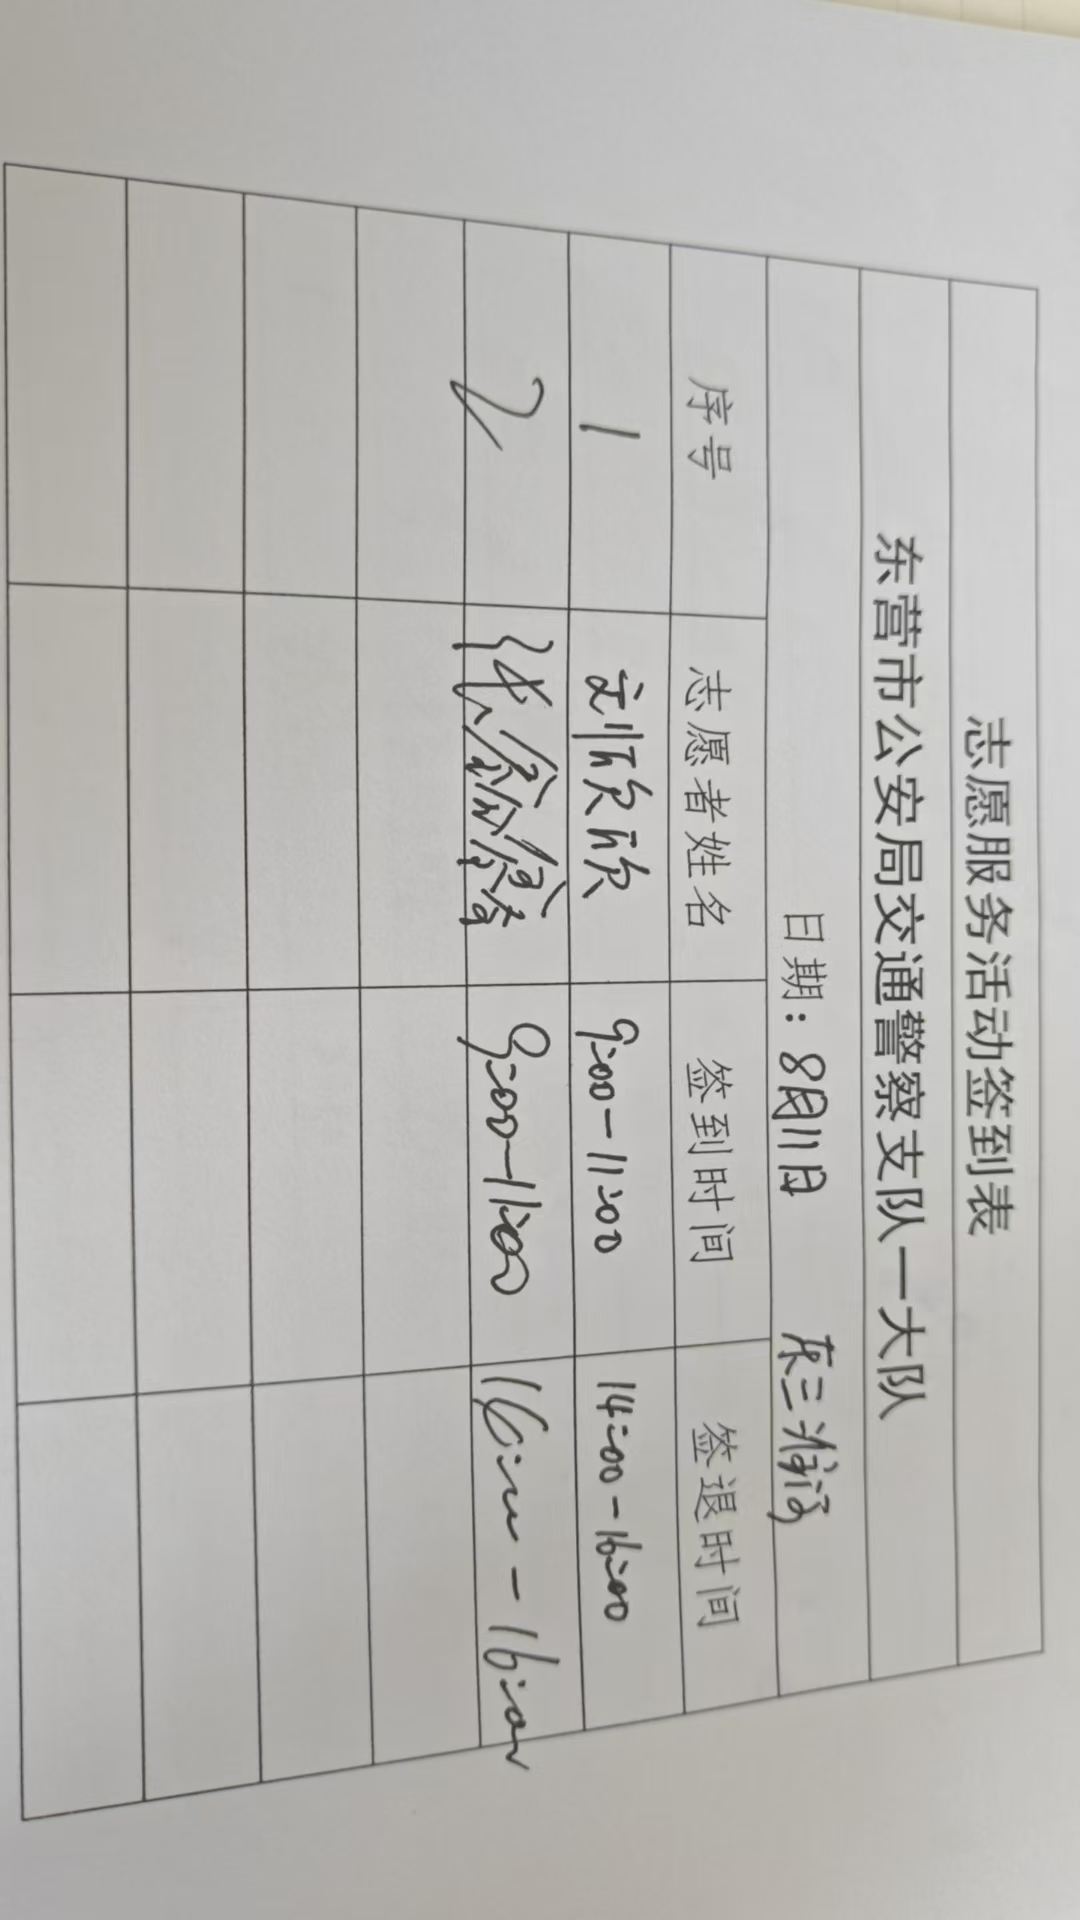 志愿服务活动签到表
东营市公安局交通警察支队一大队
日期：8月11日 东三潍河
序号 志愿者姓名 签到时间 签退时间
1 刘欣欣 9:00-11:00 14:00-16:00
2 9:00-11:00 -16:00